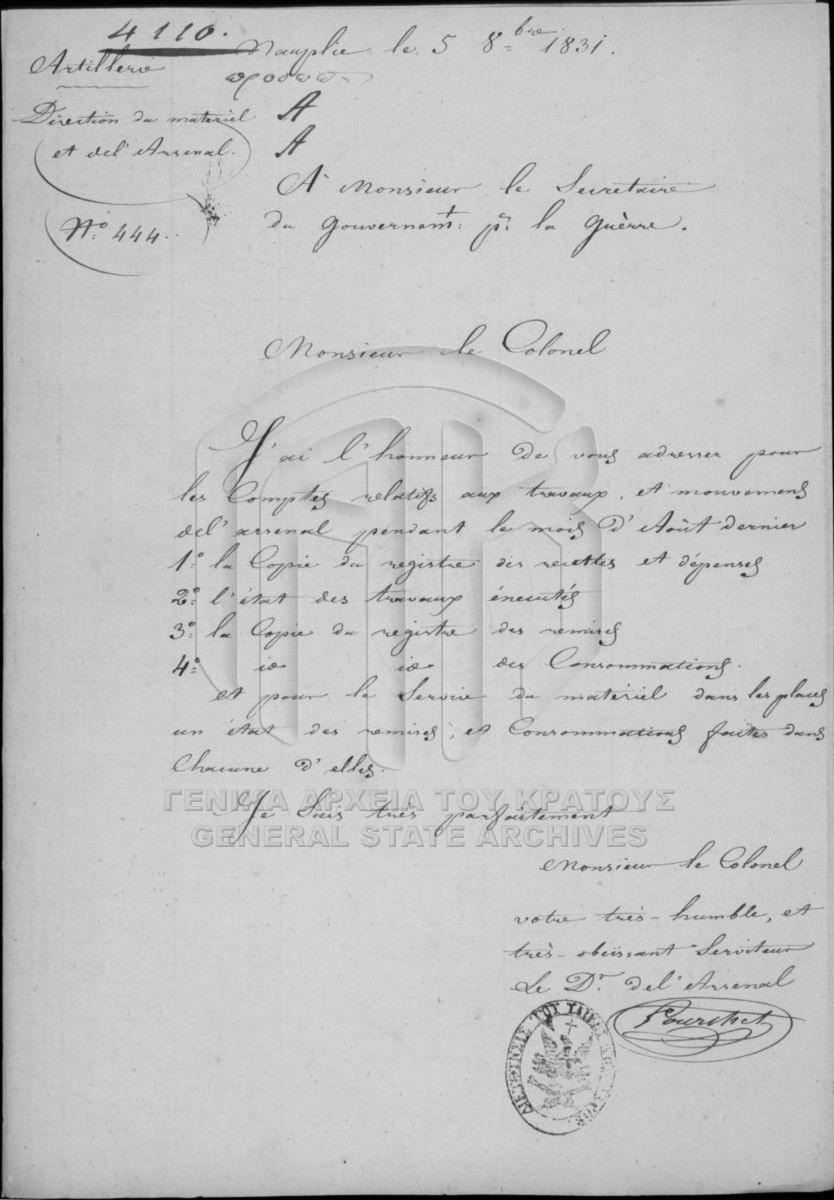 4110.
Nauplie le 5 8bre 1831.
Artillerie
Direction du matériel
et de l'Arsenal.
N° 444.
A
A
A Monsieur le Secretaire
du gouvernemt: pr: la guèrre.
Monsieur le Colonel
J'ai l'honneur de vous adresser pour
les Comptes relatifs aux travaux, et mouvemens
del'arsenal pendant le mois d'Août dernier
1° la Copie du registre des recettes et dépenses
2° l'état des travaux éxecutés
3° la Copie du registre des remises
4° id id des Consommations.
et pour le Service du matériel dans les places
un état des remises, et Consommations faites dans
Chacune d'elles.
Je Suis très parfaitement
Monsieur le Colonel
votre très-humble, et
très-obéissant Serviteur
Le Dr del'Arsenal
Pourchet
ΓΕΝΙΚΑ ΑΡΧΕΙΑ ΤΟΥ ΚΡΑΤΟΥΣ
GENERAL STATE ARCHIVES